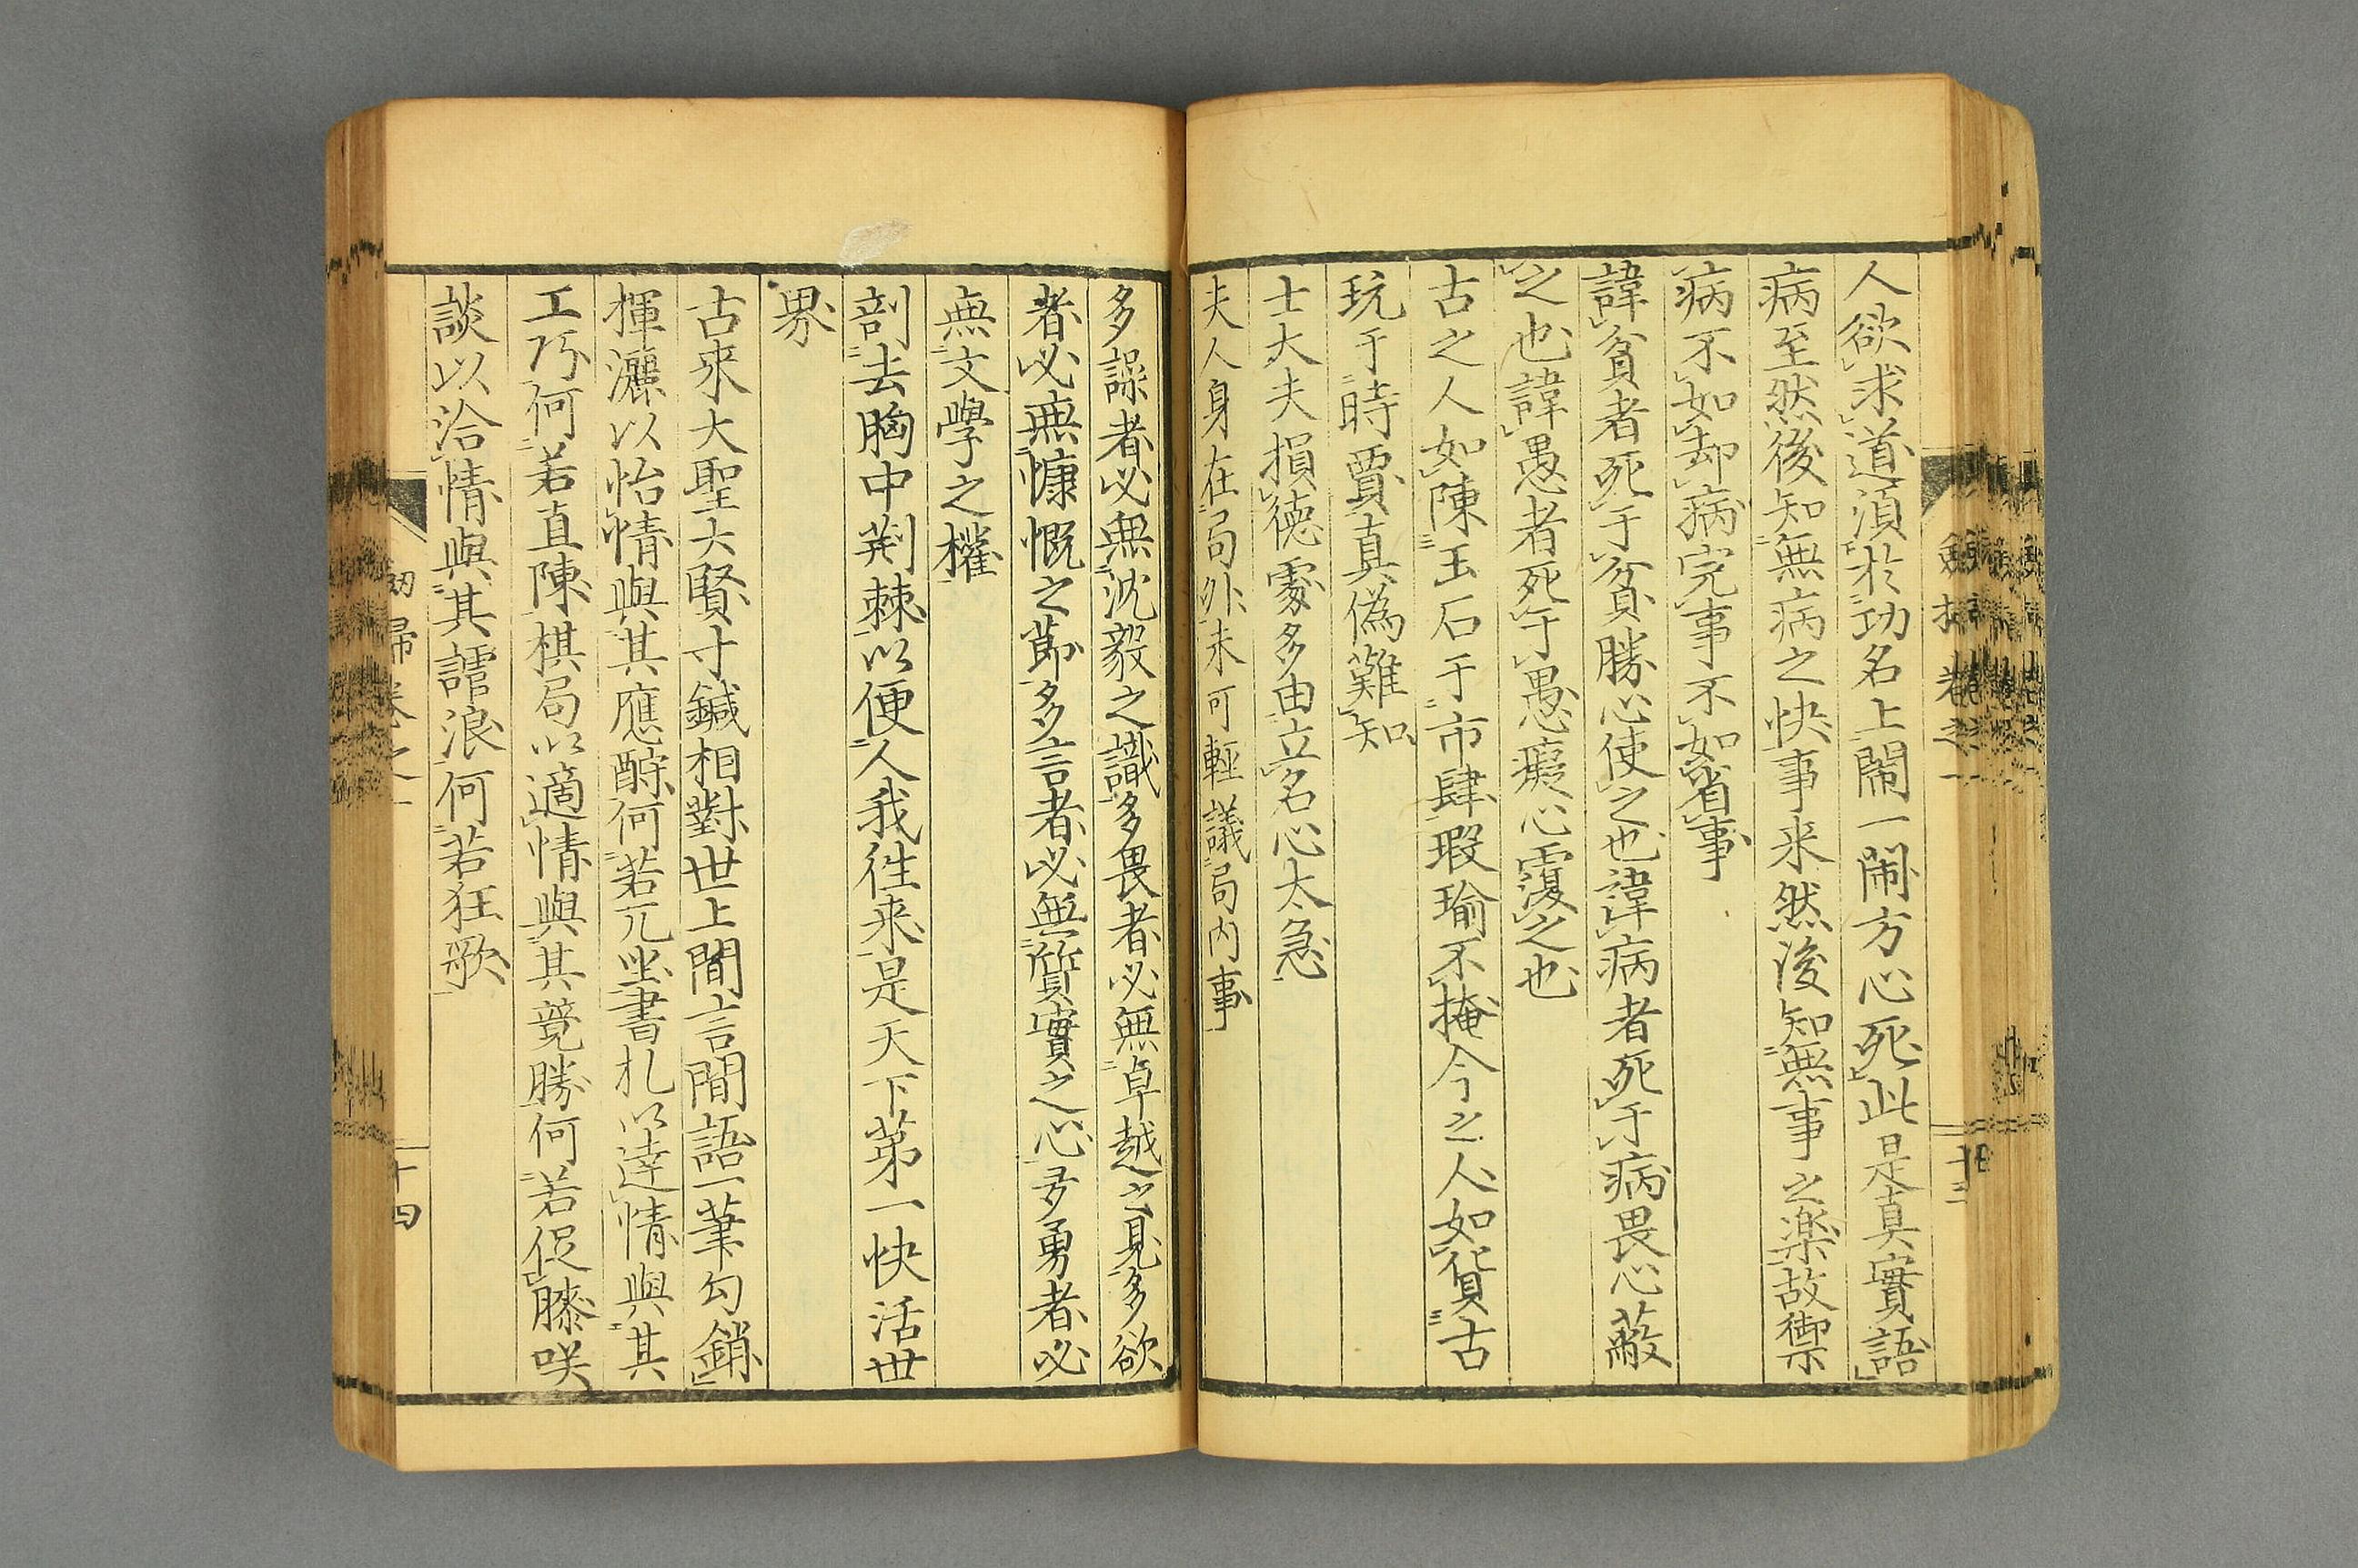 人欲求道須於功名上鬧一鬧方心死此是真實語
病至然後知無病之快事来然後知無事之楽故禦
病不如却病完事不如省事
諱貧者死于貧勝心使之也諱病者死于病畏心蔽
之也諱愚者死于愚癡心覆之也
古之人如陳玉石于市肆瑕瑜不掩今之人如貨古
玩于時賈真偽難知
士大夫損徳處多由立名心太急
夫人身在局外未可輕議局内事
多躁者必無沈毅之識多畏者必無卓越之見多欲
者必無慷慨之節多言者必無質實之心多勇者必
無文學之權
剖去胸中荆棘以便人我徃来是天下第一快活世
界
古来大聖大賢寸鍼相對世上閒言閒語一筆勾銷
揮灑以怡情與其應酬何若兀坐書札以達情與其
工巧何若直陳棋局以適情與其競勝何若促膝咲
談以洽情與其謔浪何若狂歌